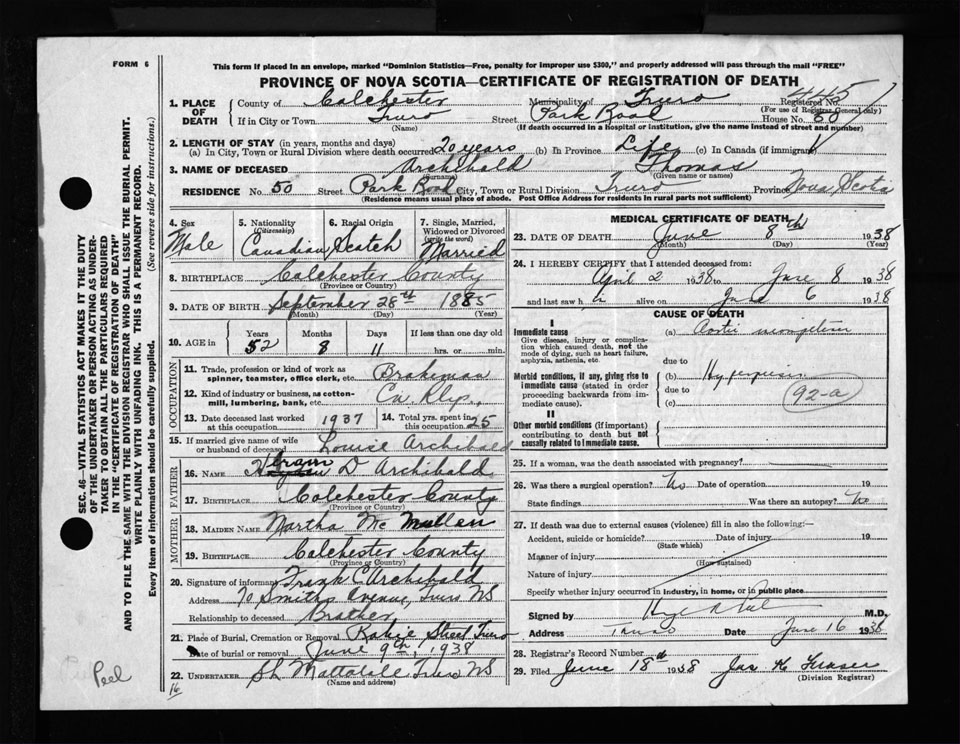 FORM 6
This form if placed in an envelope, marked "Dominion Statistics—Free, penalty for improper use $300," and property addressed will pass through the mail "FREE"
PROVINCE OF NOVA SCOTIA—CERTIFICATE OF REGISTRATION OF DEATH
1. PLACE OF DEATH County of Colchester Municipality of Truro Registered No. 445
(For use of Registrar General only)
If in City or Town Truro Street Park Road House No. 50
(Name) (If death occurred in a hospital or institution, give the name instead of street and number)
2. LENGTH OF STAY (in years, months and days)
(a) In City, Town or Rural Division where death occurred 20 years (b) In Province Life (c) In Canada (if immigrant)
3. NAME OF DECEASED Archibald Thomas
(Surname) (Given name or names)
RESIDENCE No. 50 Street Park Road City, Town or Rural Division Truro Province Nova Scotia
(Residence means usual place of abode. Post Office Address for residents in rural parts not sufficient)
4. Sex Male
5. Nationality (Citizenship) Canadian
6. Racial Origin Scotch
7. Single, Married, Widowed or Divorced (write the word) Married
8. BIRTHPLACE Colchester County
(Province or Country)
9. DATE OF BIRTH September 28th 1885
(Month) (Day) (Year)
10. AGE in Years Months Days If less than one day old
52 8 11 hrs. or min.
OCCUPATION
11. Trade, profession or kind of work as spinner, teamster, office clerk, etc. Brakeman
12. Kind of industry or business, as cotton-mill, lumbering, bank, etc.
13. Date deceased last worked at this occupation 1937
14. Total yrs. spent in this occupation 25
15. If married give name of wife or husband of deceased Louise Archibald
FATHER
16. NAME Hiram D Archibald
17. BIRTHPLACE Colchester County
(Province or Country)
MOTHER
18. MAIDEN NAME Martha McMullen
19. BIRTHPLACE Colchester County
(Province or Country)
20. Signature of informant Frank C Archibald
Address 70 Smiths Avenue, Truro NS
Relationship to deceased Brother
21. Place of Burial, Cremation or Removal Robie Street Truro
Date of burial or removal June 9th, 1938
22. UNDERTAKER Truro NS
(Name and address)
16
Peel
MEDICAL CERTIFICATE OF DEATH
23. DATE OF DEATH June 8th 1938
(Month) (Day) (Year)
24. I HEREBY CERTIFY that I attended deceased from:
April 2 1938 to June 8 1938
and last saw h alive on June 6 1938
CAUSE OF DEATH
I
Immediate cause
Give disease, injury or complication which caused death, not the mode of dying, such as heart failure, asphyxia, asthenia, etc.
(a) Aortic
due to
Morbid conditions, if any, giving rise to immediate cause (stated in order proceeding backwards from immediate cause).
(b)
due to
(c)
92-a
II
Other morbid conditions (if important) contributing to death but not causally related to immediate cause.
25. If a woman, was the death associated with pregnancy?
26. Was there a surgical operation? No Date of operation 19
State findings Was there an autopsy? No
27. If death was due to external causes (violence) fill in also the following:—
Accident, suicide or homicide? Date of injury 19
(State which)
Manner of injury
(How sustained)
Nature of injury
Specify whether injury occurred in industry, in home, or in public place
Signed by M.D.
Address Truro Date June 16 1938
28. Registrar's Record Number
29. Filed June 18th 1938 Jas H Fraser
(Division Registrar)
SEC. 46—VITAL STATISTICS ACT MAKES IT THE DUTY OF THE UNDERTAKER OR PERSON ACTING AS UNDERTAKER TO OBTAIN ALL THE PARTICULARS REQUIRED IN THE "CERTIFICATE OF REGISTRATION OF DEATH"
AND TO FILE THE SAME WITH THE DIVISION REGISTRAR WHO SHALL ISSUE THE BURIAL PERMIT.
WRITE PLAINLY WITH UNFADING INK. THIS IS A PERMANENT RECORD.
Every item of information should be carefully supplied. (See reverse side for instructions.)